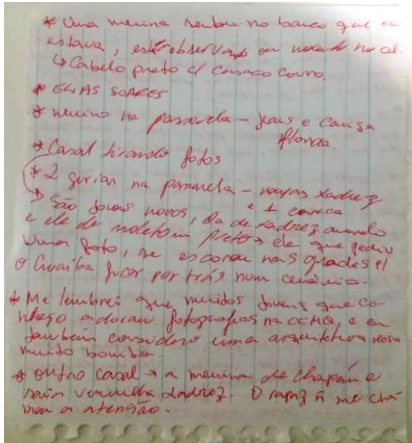 * Uma menina sentou no banco que eu
estava, está observando ou no cel.
↳ Cabelo preto c/ casaco couro.
* ELIAS SOARES
* menino na passarela - jeans e camisa
florida.
* Casal tirando fotos
* 2 gurias na passarela - roupas xadrez
e 1 careca
→ São jovens novos, ela de xadrez amarelo
e ele de moletom preto → ele que pediu
uma foto, se escorar nas grades p/
o Guaíba ficar por trás num cenário.
* Me lembrei que muitos jovens que co-
nheço adoram fotografias na CCMQ e eu
também considero uma arquitetura rosa
muito bonita.
* outro casal → a menina de chapéu e
saia vermelha xadrez. O rapaz ñ me cha-
mou a atenção.